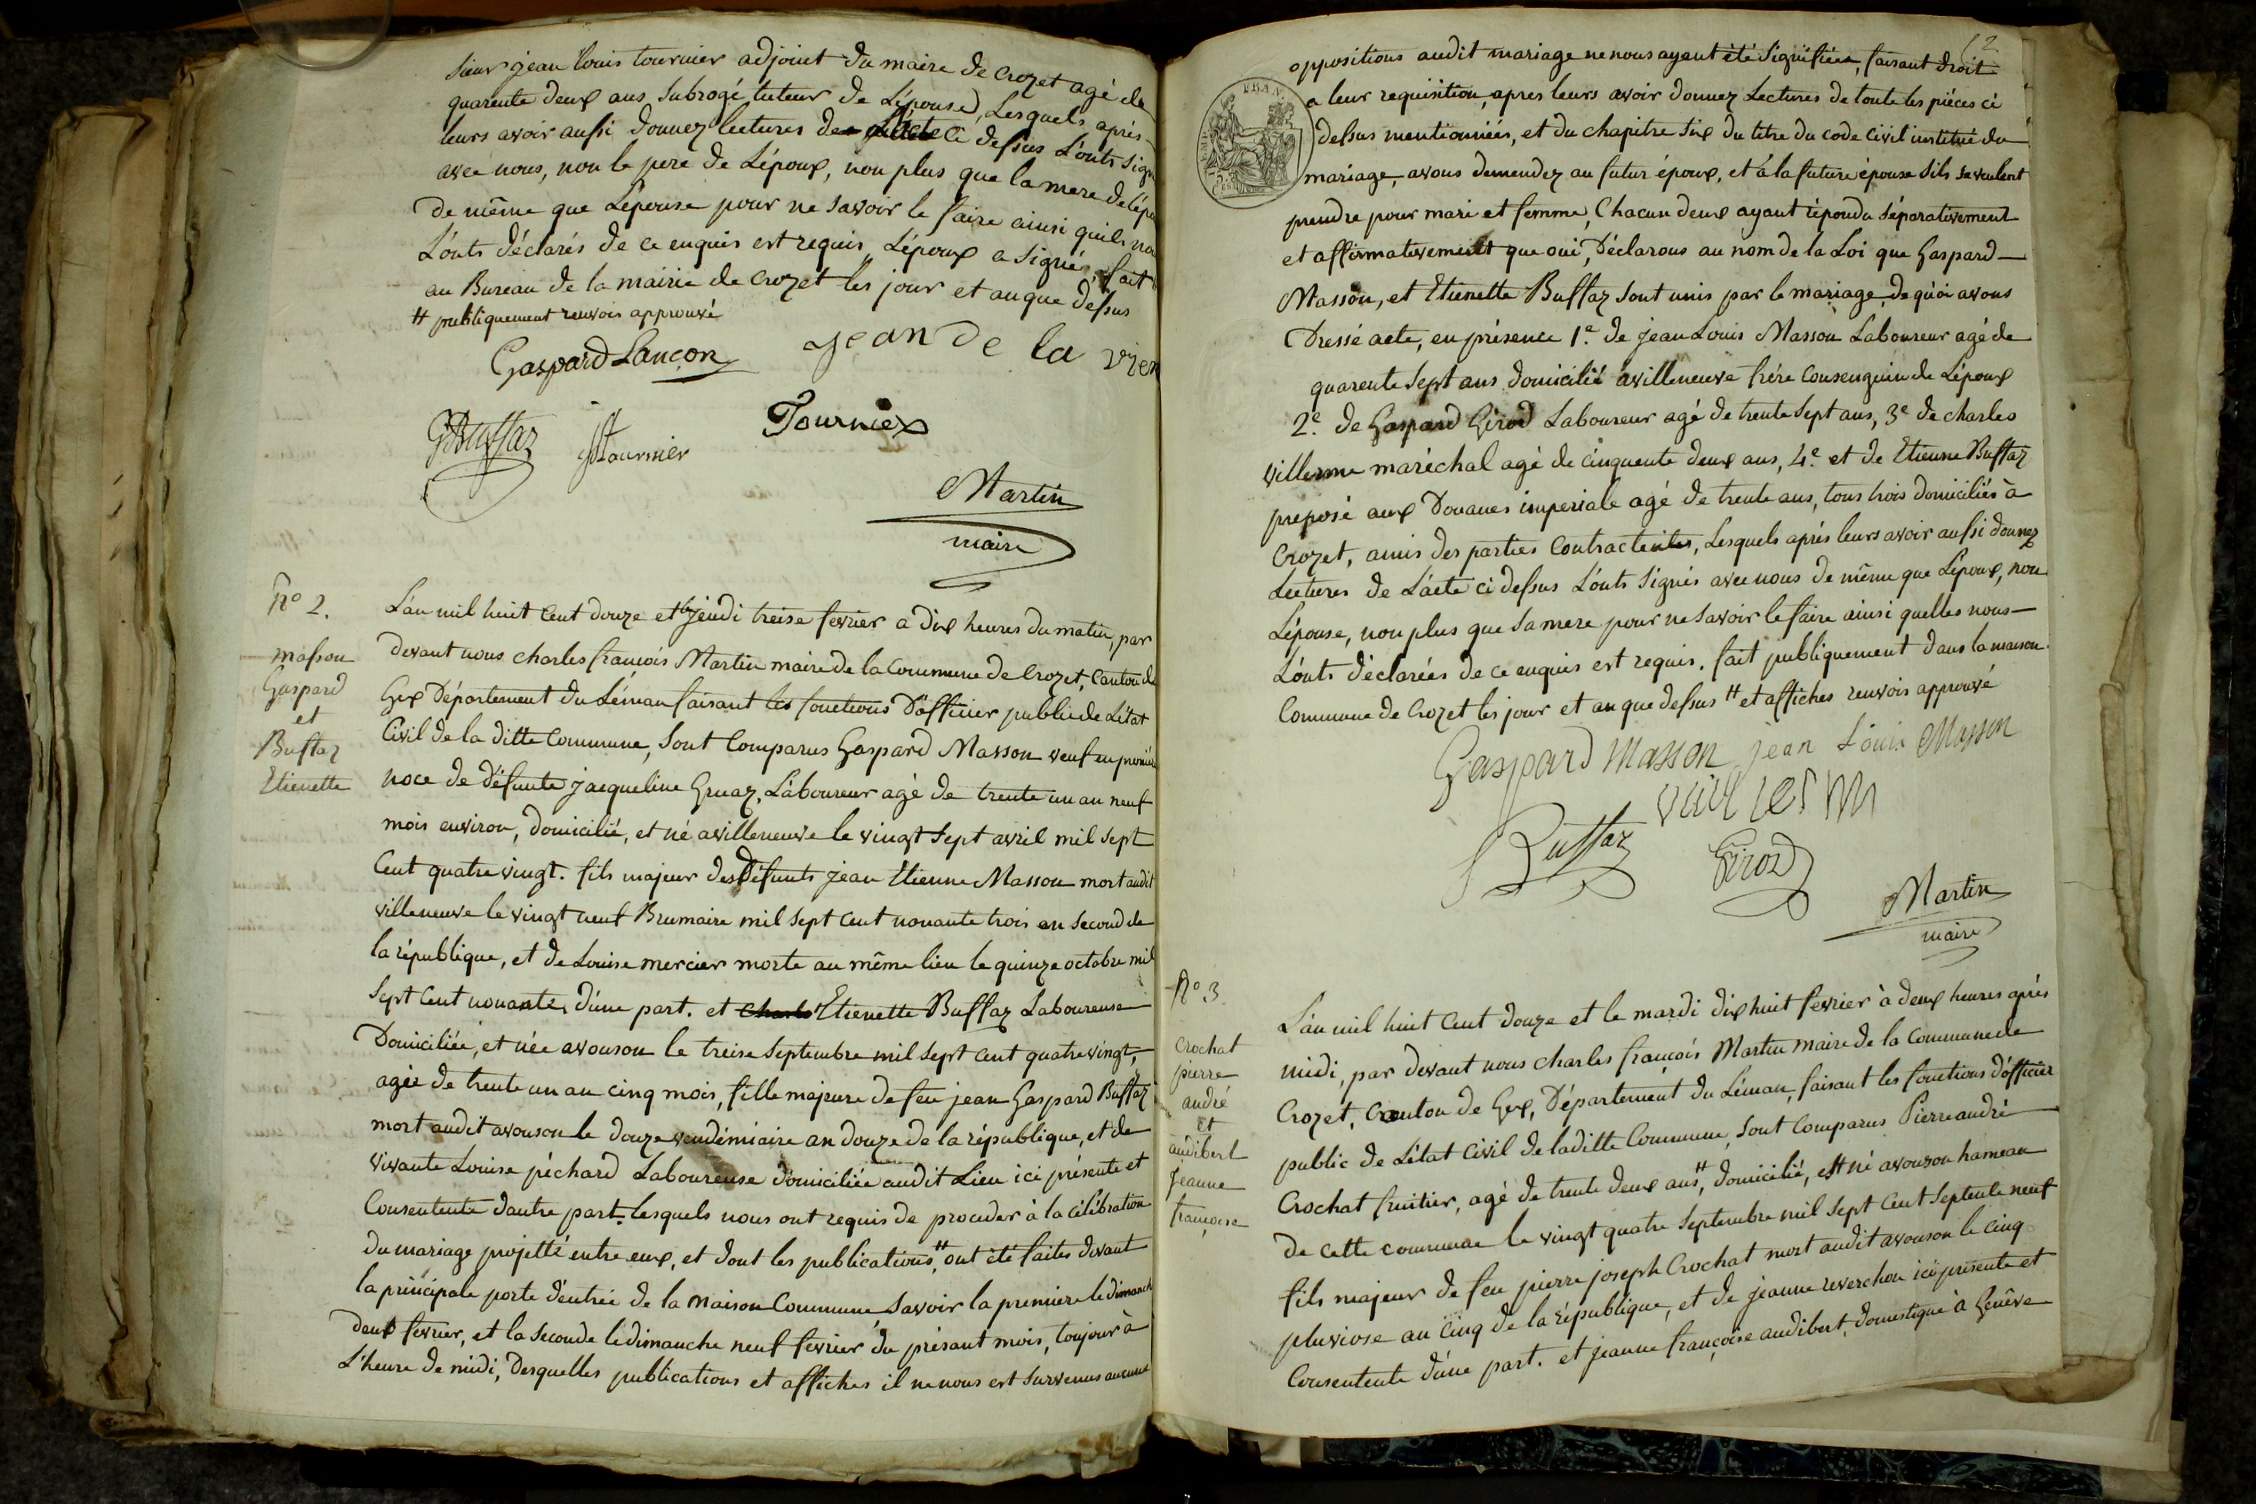 Sieur jean louis tournier adjoint du maire de crozet agé de
quarente deux ans subrogé tuteur de L'épouse, Lesquels après
leurs avoir aussi donnez lectures de L'acte ci dessus L'onts sign
avec nous, non le pere de L'époux, non plus que la mere de L'épo
de même que L'épouse pour ne savoir le faire ainsi qu'ils no
L'onts déclarés de ce enquis est requis, L'époux a signés, fait
au Bureau de la mairie de crozet les jour et an que dessus
# publiquement renvois approuvé
Gaspard Lançon jean De la
GBuffaz JLtournier Tournier
Martin
maire
No 2.
masson
Gaspard
et
Buffaz
Etienette
L'an mil huit cent douze et le jeudi treise fevrier a dix heures du matin, par
devant nous charles françois Martin maire de la Commune de Crozet, Canton de
Gex Département du Léman faisant les fonctions D'officier public de L'état
Civil de la ditte Commune, Sont Comparus Gaspard Masson veuf en premiere
noce de Défunte jacqueline Gruaz, Laboureur agé de trente un an neuf
mois environ, domicilié, et né a villeneuve le vingt sept avril mil sept
Cent quatre vingt. fils majeur des Défunts jean Etienne Masson mort audit
villeneuve le vingt neuf Brumaire mil sept cent nonante trois an second de
la république, et de Louise mercier morte au même lieu le quinze octobre mil
sept cent nonante, d'une part. et Charle Etienette Buffaz Laboureuse
Domiciliée, et née avouson le treise septembre mil sept cent quatre vingt,
agée de trente un an cinq mois, fille majeure de feu jean Gaspard Buffaz
mort audit avouson le douze vendémiaire an douze de la république, et de
vivante Louise péchard Laboureuse domiciliée audit Lieu ici présente et
Consentente d'autre part. Lesquels nous ont requis de proceder à la célébration
du mariage projetté entre eux, et dont les publications # ont été faites devant
la principale porte d'entrée de la maison Commune Savoir la premiere le dimanch
deux fevrier, et la seconde le dimanche neuf fevrier du présant mois, toujour à
L'heure de midi, Desquelles publications et affiches il ne nous est survenus aucune
2
oppositions audit mariage ne nous ayent été signifiées, faisant droit
a leur requisition, apres leurs avoir donnez Lectures de toute les pièces ci
dessus mentionnées, et du chapitre six du titre du code civil institué du
mariage, avons demendez au futur époux, et à la future épouse s'ils se veulent
prendre pour mari et femme, Chacun deux ayant répondu séparativement
et affirmativement que oui, Déclarons au nom de la Loi que Gaspard
Masson, et Etienette Buffaz sont unis par le mariage, de quoi avons
Dressé acte, en présence 1e. de jean Louis Masson Laboureur agé de
quarente sept ans domicilié a villeneuve frére Consenguin de L'époux
2e. de Gaspard Girod Laboureur agé de trente sept ans, 3e de charles
villerme maréchal agé de cinquente deux ans, 4e. et de Etienne Buffaz
preposé aux Douanes imperiale agé de trente ans, tous trois domiciliés à
Crozet, amis des parties Contractentes, Lesquels après leurs avoir aussi donnez
Lectures de L'acte ci dessus L'onts signés avec nous de même que L'époux, non
L'épouse, non plus que sa mere pour ne savoir le faire ainsi quelles nous
L'onts déclarées de ce enquis est requis. fait publiquement dans la maison
Commune de Crozet les jour et an que dessus # et affiches renvois approuvé
Gaspard Masson jean Louis Masson
Buffaz Girod
Martin
maire
No. 3.
Crochat
pierre
andré
et
audibert
Jeanne
françoise
L'an mil huit cent douze et le mardi dix huit fevrier à deux heures après
midi, par devant nous charles françois Martin maire de la Commune de
Crozet, Canton de Gex, Département du Léman, faisant les fonctions d'officier
public de L'état Civil de la ditte Commune, sont comparus Pierre andré
Crochat fruitier, agé de trente deux ans #, domicilié, et né avouson hameau
de cette commune le vingt quatre septembre mil sept cent septente neuf
fils majeur de feu pierre joseph Crochat mort audit avouson le cinq
pluviose an cinq de la république, et de jeanne reverchon ici présente et
Consentente d'une part. et jeanne françoise audibert, domestique à Genève